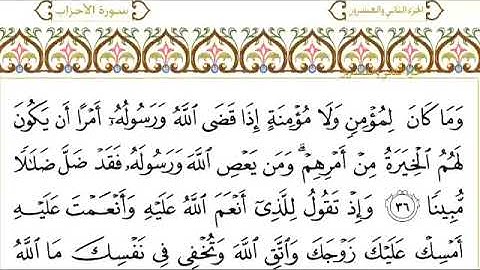 سورة الأحزاب
الجزء الثاني والعشرون
وَمَا كَانَ لِمُؤْمِنٍ وَلَا مُؤْمِنَةٍ إِذَا قَضَى ٱللَّهُ وَرَسُولُهُۥٓ أَمْرًا أَن يَكُونَ
لَهُمُ ٱلْخِيَرَةُ مِنْ أَمْرِهِمْ ۗ وَمَن يَعْصِ ٱللَّهَ وَرَسُولَهُۥ فَقَدْ ضَلَّ ضَلَٰلًا
مُّبِينًا ٣٦ وَإِذْ تَقُولُ لِلَّذِىٓ أَنْعَمَ ٱللَّهُ عَلَيْهِ وَأَنْعَمْتَ عَلَيْهِ
أَمْسِكْ عَلَيْكَ زَوْجَكَ وَٱتَّقِ ٱللَّهَ وَتُخْفِى فِى نَفْسِكَ مَا ٱللَّهُ